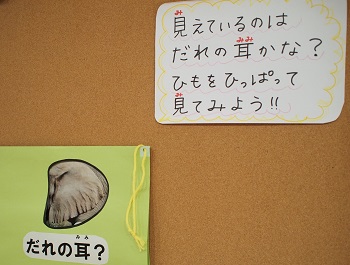 見えているのは
だれの耳かな？
ひもをひっぱって
見てみよう!!
だれの耳？